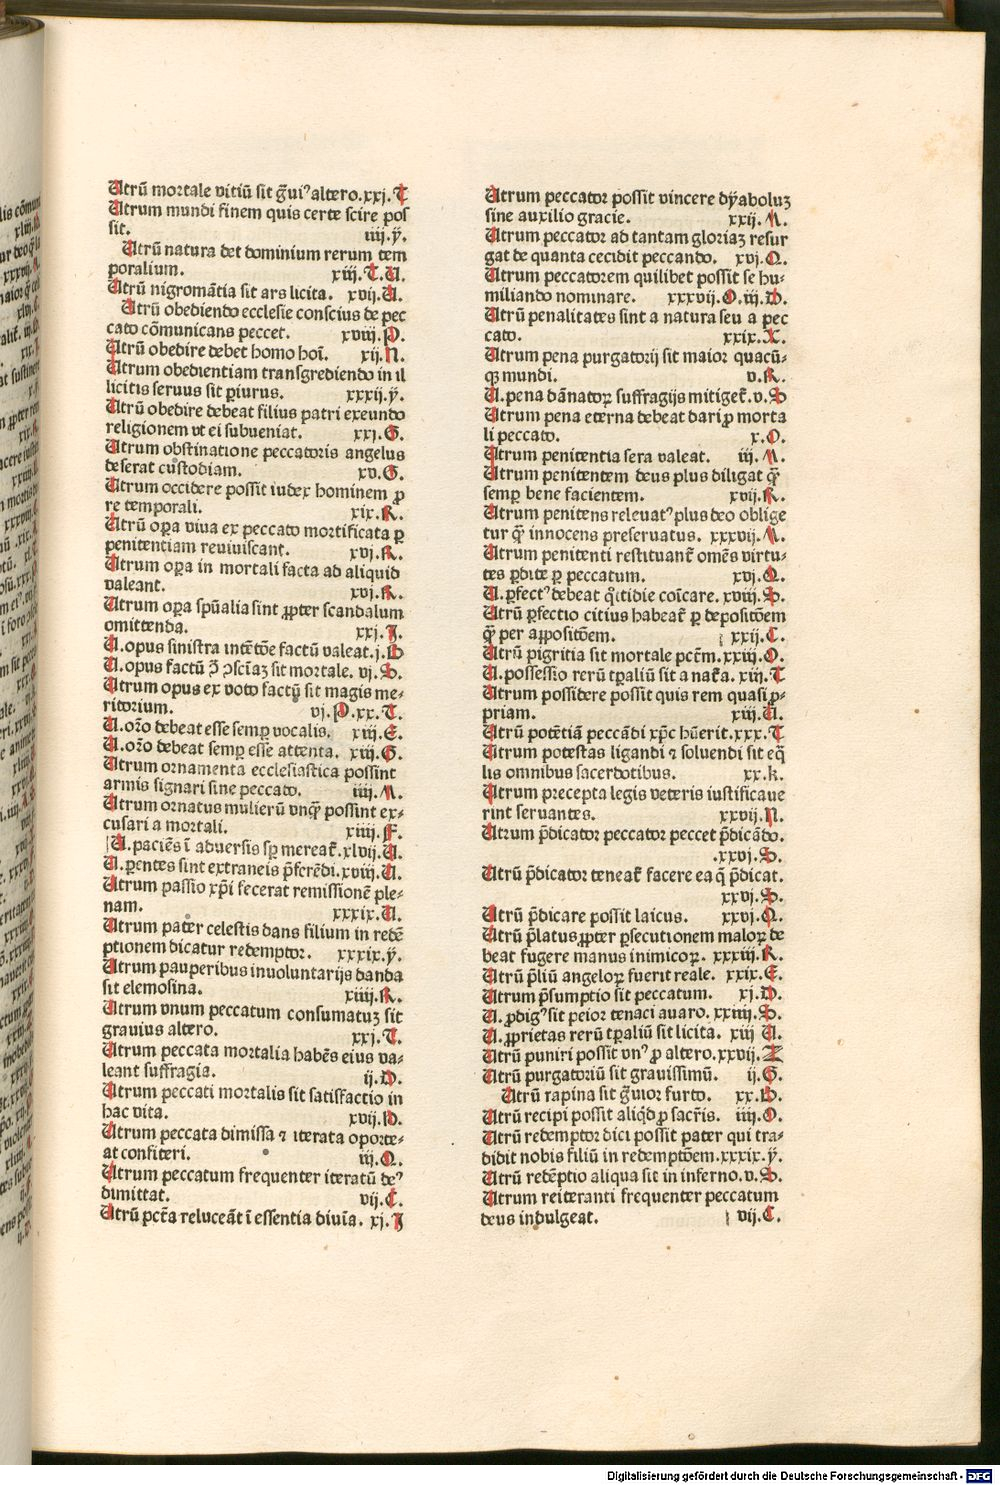 Utrũ mortale vitiũ sit g̃ui⁹ altero.xxj.T
Utrum mundi finem quis certe scire pos
sit. iiij.ÿ.
Utrũ natura det dominium rerum tem
poralium. xiij.T.U.
Utrũ nigromãtia sit ars licita. xvij.U.
Utrũ obediendo ecclesie conscius de pec
cato cõmunicans peccet. xviij.P.
Utrũ obedire debet homo hoĩ. xij.N.
Utrum obedientiam transgrediendo in il
licitis seruus sit ꝑiurus. xxxij.ÿ.
Utrũ obedire debeat filius patri exeundo
religionem vt ei subueniat. xxj.G.
Utrum obstinatione peccatoris angelus
deserat custodiam. xv.G.
Utrum occidere possit iudex hominem ꝓ
re temporali. xix.K.
Utrũ oꝑa viua ex peccato mortificata ꝑ
penitentiam reuiuiscant. xvj.K.
Utrum oꝑa in mortali facta ad aliquid
valeant. xvj.K.
Utrum oꝑa spũalia sint ꝓpter scandalum
omittenda. xxj.J.
U.opus sinistra intẽtõe factũ valeat.j.D
U.opus factũ ↄ̃ ↄsciẽaꝫ sit mortale. vj.S.
Utrum opus ex voto factũ sit magis me-
ritorium. vj.P.xx.T.
U.orõ debeat esse semꝑ vocalis. xiij.E.
U.orõ debeat semꝑ esse attenta. xiij.G.
Utrum ornamenta ecclesiastica possint
armis signari sine peccato. iiij.M.
Utrum ornatus mulierũ vnꝙ̃ possint ex-
cusari a mortali. xiiij.F.
U.paciẽs ĩ aduersis sꝑ mereat᷑.xlvij.U.
U.ꝑentes sint extraneis p̃ferẽdi.xviij.U.
Utrum passio xp̃i fecerat remissionẽ ple-
nam. xxxix.U.
Utrum pater celestis dans filium in redẽ
ptionem dicatur redemptor. xxxix.ÿ.
Utrum pauperibus inuoluntarijs danda
sit elemosina. xiiij.K.
Utrum vnum peccatum consumatuꝫ sit
grauius altero. xxj.T.
Utrum peccata mortalia habẽs eius va-
leant suffragia. ij.D.
Utrum peccati mortalis sit satisfactio in
hac vita. xvij.D.
Utrum peccata dimissa ⁊ iterata oporte-
at confiteri. iij.Q.
Utrum peccatum frequenter iteratũ de⁹
dimittat. vij.C.
Utrũ pct̃a reluceãt ĩ essentia diuĩa. xj.J
Utrum peccator possit vincere dÿaboluꝫ
sine auxilio gracie. xxij.M.
Utrum peccator ad tantam gloriaꝫ resur
gat de quanta cecidit peccando. xvj.Q.
Utrum peccatorem quilibet possit se hu-
miliando nominare. xxxvij.O.iij.D.
Utrũ penalitates sint a natura seu a pec
cato. xxix.X.
Utrum pena purgatorij sit maior quacũ-
qꝫ mundi. v.K.
U.pena dãnatoꝝ suffragijs mitiget᷑.v.S
Utrum pena eterna debeat dari ꝓ morta
li peccato. x.O.
Utrum penitentia sera valeat. iij.M.
Utrum penitentem deus plus diligat ꝙ̃
semꝑ bene facientem. xvij.K.
Utrum penitens releuat⁹ plus deo oblige
tur ꝙ̃ innocens preseruatus. xxxvij.M.
Utrum penitenti restituant᷑ omẽs virtu-
tes ꝑdite ꝑ peccatum. xvj.Q.
U.ꝑfect⁹ debeat q̃tidie coĩcare. xviij.S.
Utrũ ꝑfectio citius habeat᷑ ꝑ depositõem
ꝙ̃ per aꝓpositõem. xxij.C.
Utrũ pigritia sit mortale pctm̃.xxiij.O.
U.possessio rerũ tꝑaliũ sit a nat᷑a. xiij.T
Utrum possidere possit quis rem quasi ꝓ-
priam. xiij.U.
Utrũ potẽtiã peccãdi xp̃c hũerit.xxx.T
Utrum potestas ligandi ⁊ soluendi sit eq̃
lis omnibus sacerdotibus. xx.k.
Utrum precepta legis veteris iustificaue
rint seruantes. xxvij.N.
Utrum p̃dicator peccator peccet p̃dicãdo.
.xxvj.S.
Utrũ p̃dicator teneat᷑ facere ea q̃ p̃dicat.
xxvj.S.
Utrũ p̃dicare possit laicus. xxvj.Q.
Utrũ p̃latus ꝓpter ꝑsecutionem maloꝝ de
beat fugere manus inimicoꝝ. xxxiij.K.
Utrũ p̃liũ angeloꝝ fuerit reale. xxix.E.
Utrum p̃sumptio sit peccatum. xj.D.
U.ꝓdig⁹ sit peior tenaci auaro. xxiiij.S.
U.ꝓprietas rerũ tꝑaliũ sit licita. xiij U.
Utrũ puniri possit vn⁹ ꝓ altero.xxvij.Z
Utrũ purgatoriũ sit grauissimũ. ij.G.
Utrũ rapina sit g̃uior furto. xx.D.
Utrũ recipi possit aliq̃d ꝓ sacr̃is. iiij.O.
Utrũ redemptor dici possit pater qui tra-
didit nobis filiũ in redemptõem.xxxix.ÿ.
Utrũ redẽptio aliqua sit in inferno.v.S.
Utrum reiteranti frequenter peccatum
deus indulgeat. vij.C.
Digitalisierung gefördert durch die Deutsche Forschungsgemeinschaft - DFG